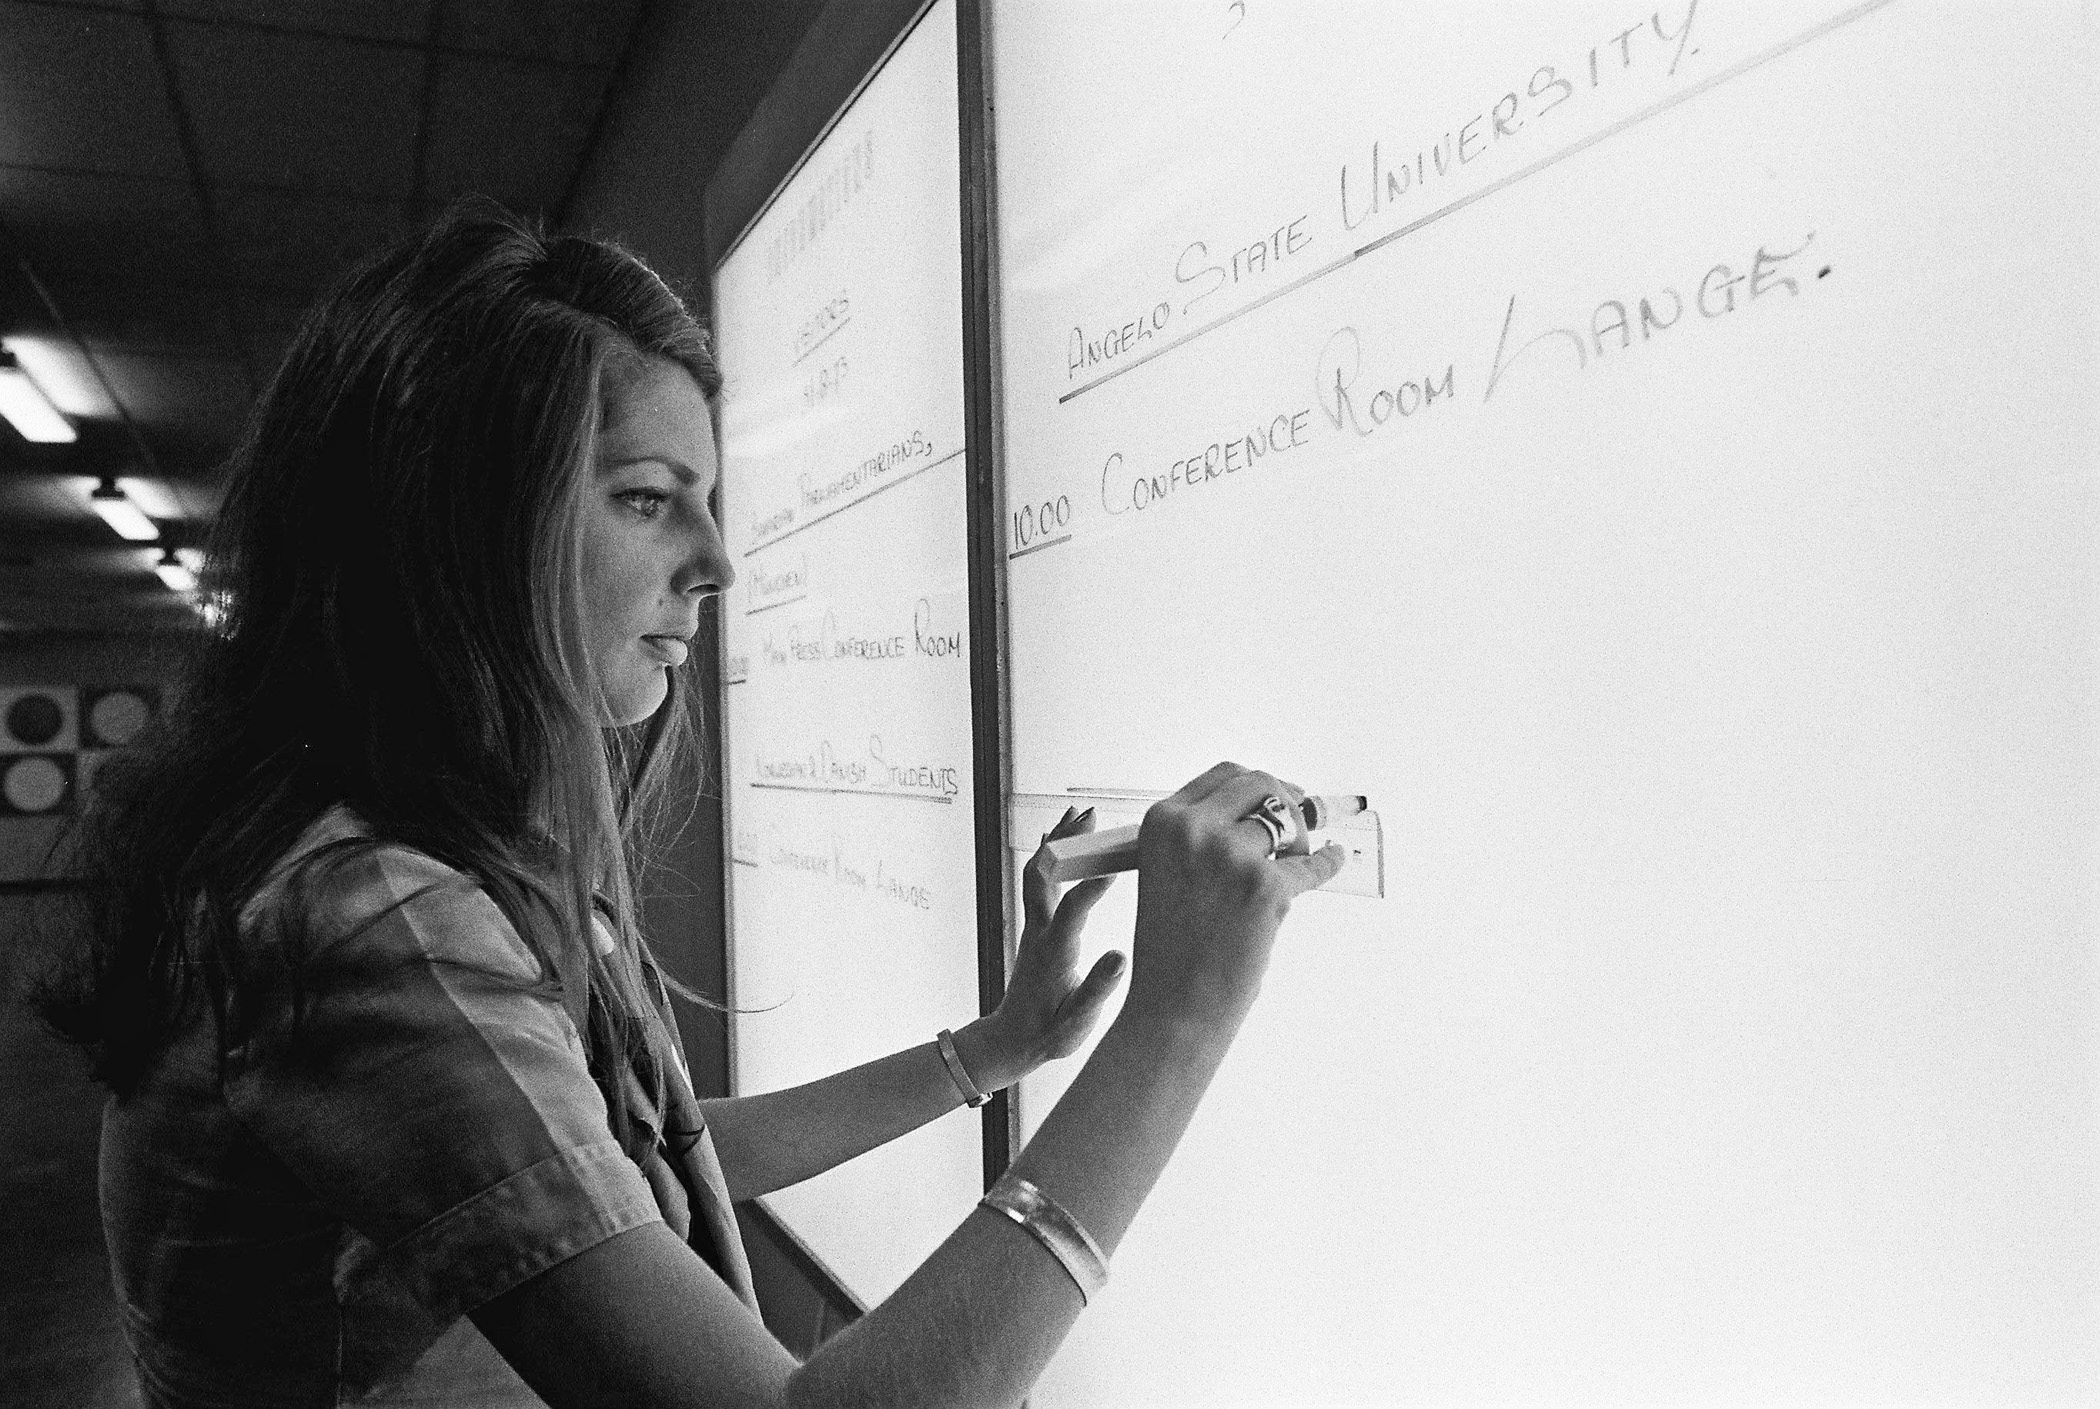 VISITORS
Parliamentarians,
(München)
Main Press Conference Room
& Danish Students
Conference Room Lange
Angelo State University.
10.00 Conference Room Lange.